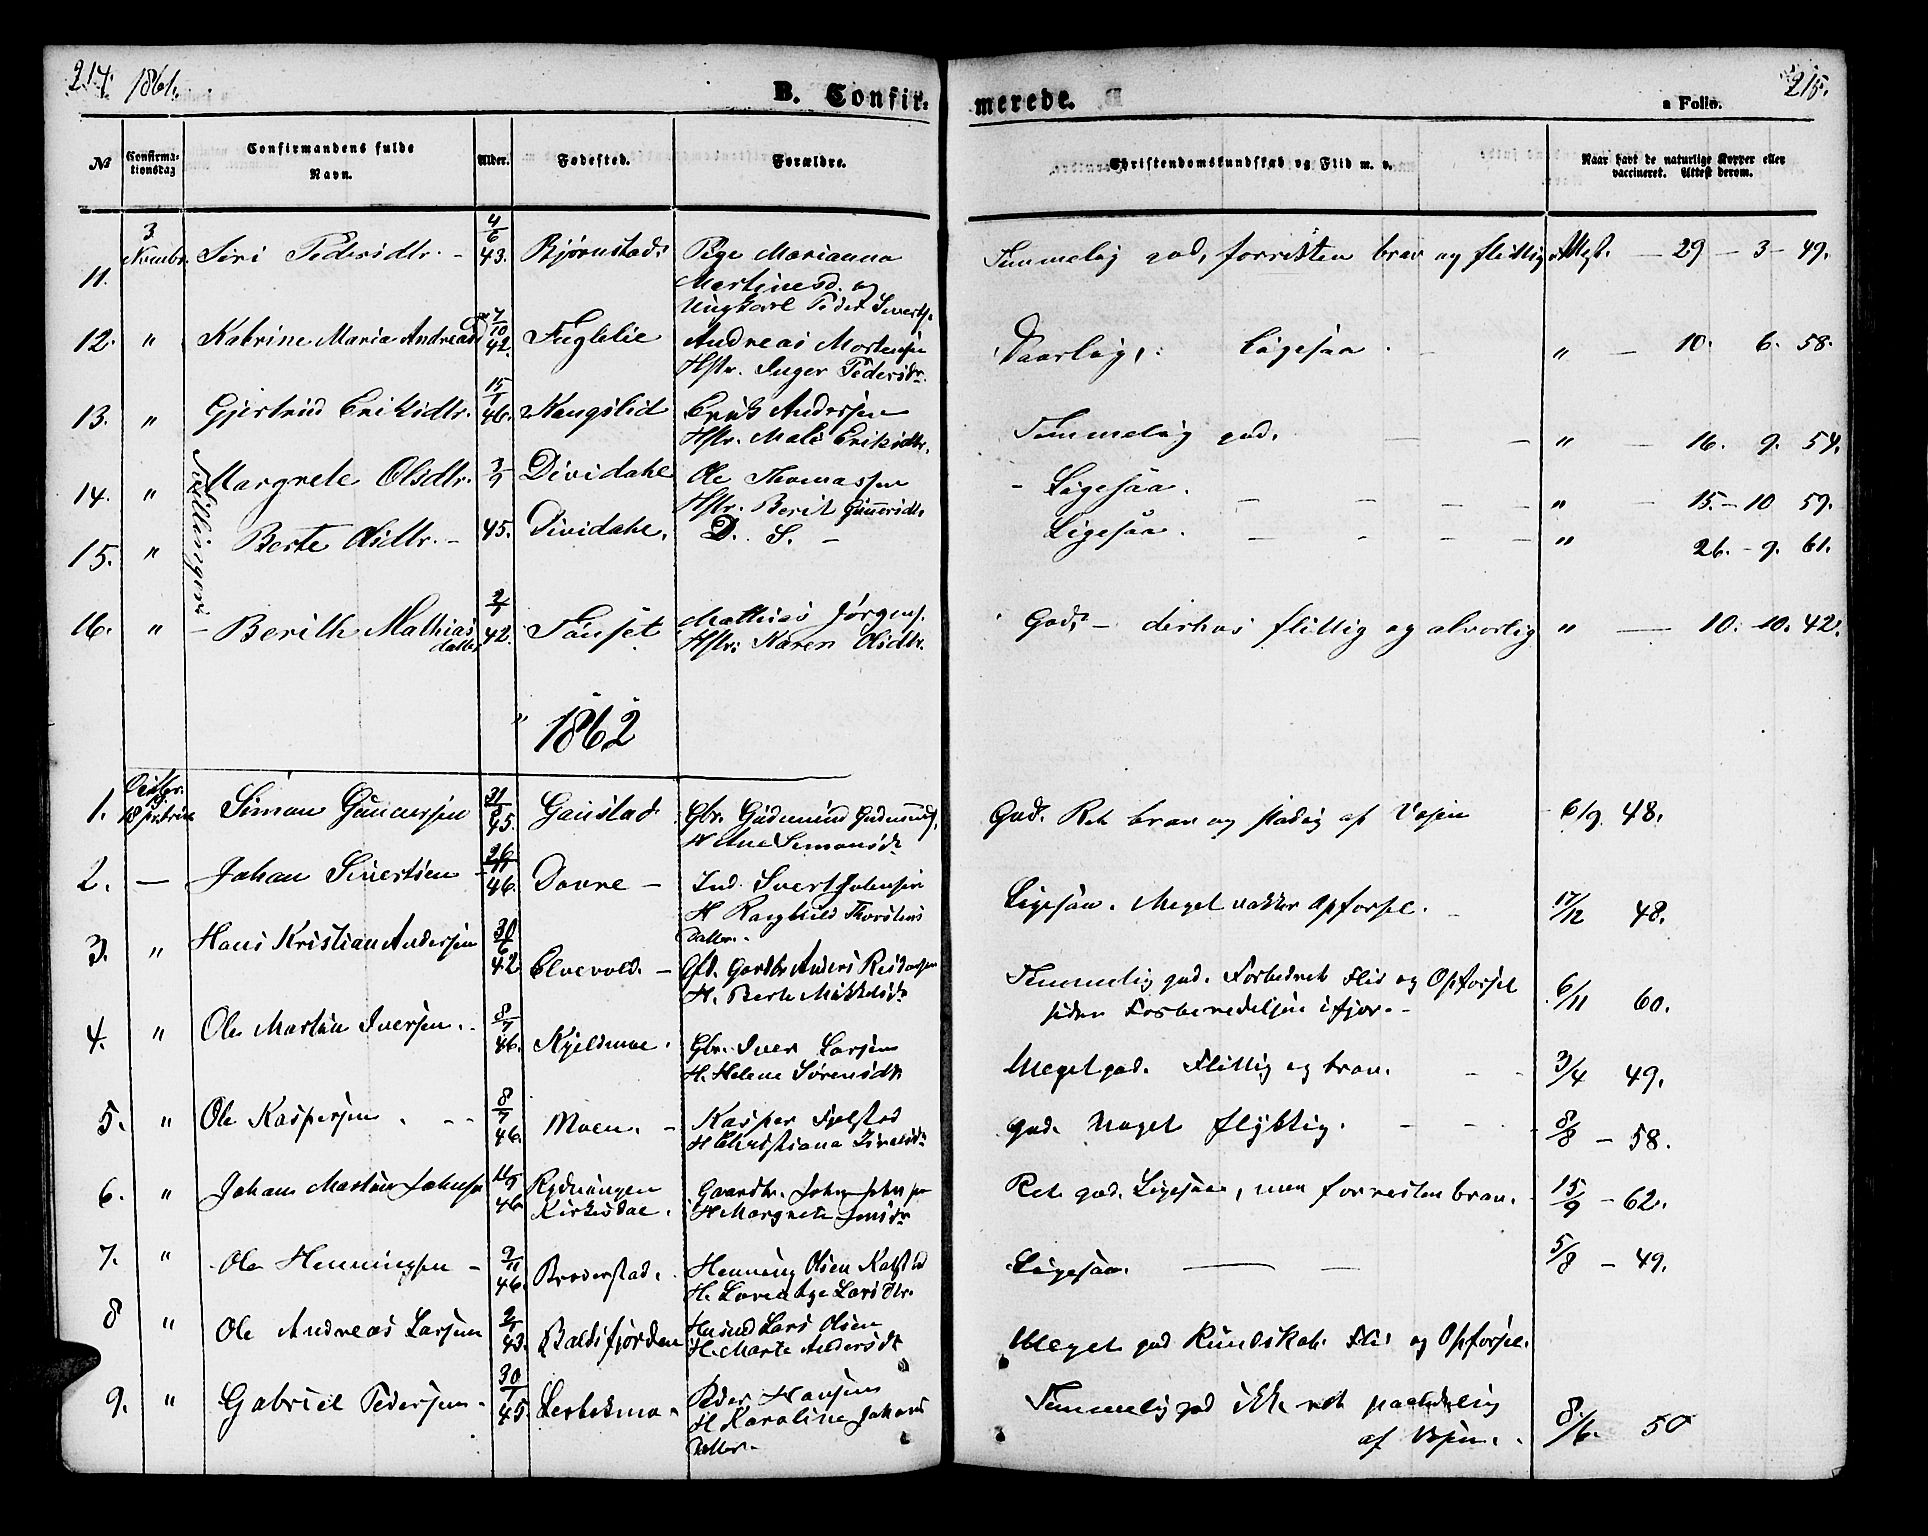 214. 1861.
B. Confir-
merede.
a Folio.
215.
No
Confirma-
tionsdag
Confirmandens fulde
Navn.
Alder.
Fødested.
Forældre.
Christendomskundskab og Flid m. v.
Naar havt de naturlige Kopper eller
vaccineret. Attest derom.
11. 3 Novembr. Siri Pedersdtr. - 4/6 43. Bjørnstad Pige Marianna
Martinusd. og
Ungkarl Peder Sivert
Temmelig god, forresten brav og flittig Attest. - 29 - 3 - 49.
12. " Katrine Maria Andreasd 7/10 42. Fuglelie Andreas Mortensen
Hstr. Inger Pedersdr.
Daarlig, Ligesaa. " - 10. 6. 58.
13. " Gjertrud Eriksdtr. 15/1 46. Kongslid Erik Andersen
Hstr. Mali Eriksdtr.
Temmelig god. " - 16. 9. 54.
Tvillinger
14. " Margrete Olsdtr. 3/7 Dividahl Ole Thomassen
Hstr. Berit
Ligesaa. " - 15. - 10 59.
15. " Berte Olsdtr. - 45. Dividahl. D. S. -
Ligesaa. " 26. - 9. 61.
16. " - Berith Mathias
datter 2/7 42. Fauset Mathias Jørgens.
Hstr. Karen Olsdtr.
God, - derhos flittig og alvorlig " - 10. 10. 42.
1862
1. 18 Simon Gunnersen 31/8 45. Gaustad Gbr. Gudmund Gudmunds.
H Ane Simonsdr
God. Ret brav og stadig af Vesen - 6/9. 48.
2. - Johan Sivertsen 46. Dovre - Ind. Sivert Johnsen
H Ragnhild Thorstens
datter.
Ligesaa. Meget vakker Opførsel. 17/12 48.
3. " Hans Kristian Andersen 30/6 42 Elvevold. - Anders
H. Berte Mikkelsdr
Temmelig god. Forbedret Flid og Opførsel
siden Forberedelsen ifjor. - 6/11 60.
4. " Ole Martin Iversen. 8/7 46. Kjeldmoe. Gbr. Iver Larsen
H. Helene Sørensdt.
Meget god. Flittig og brav. 3/4 49.
5. " Ole Kaspersen. - - 8/7 46. Moen. - Kasper Fjelstad
H Christiana
god. Noget flygtig. 8/8 - 58.
6. " Johan Martin Johnsen 11/9 46 Rydningen
Kirkesdal. Gaardbr. John Johnsen
H Margrete Jensdr
Ret god. Ligesaa, men forresten brav. 15/9 - 62.
7. " Ole Henningsen - 2/11 46. Broderstad. Henning Olsen
H. Lorentze Larsdtr.
Ligesaa. 5/8 - 49.
8 " Ole Andreas Larsen 2/1 43. Balsfjorden Husmd Lars Olsen
H. Marte Andersdt
Meget god Kundskab. Flid og Opførsel.
9. " Gabriel Pedersen - 30/1 45. Peder Hansen
H Karoline Johans
datter.
Temmelig god ikke ret paalidelig
af Vesen. 8/6. 50